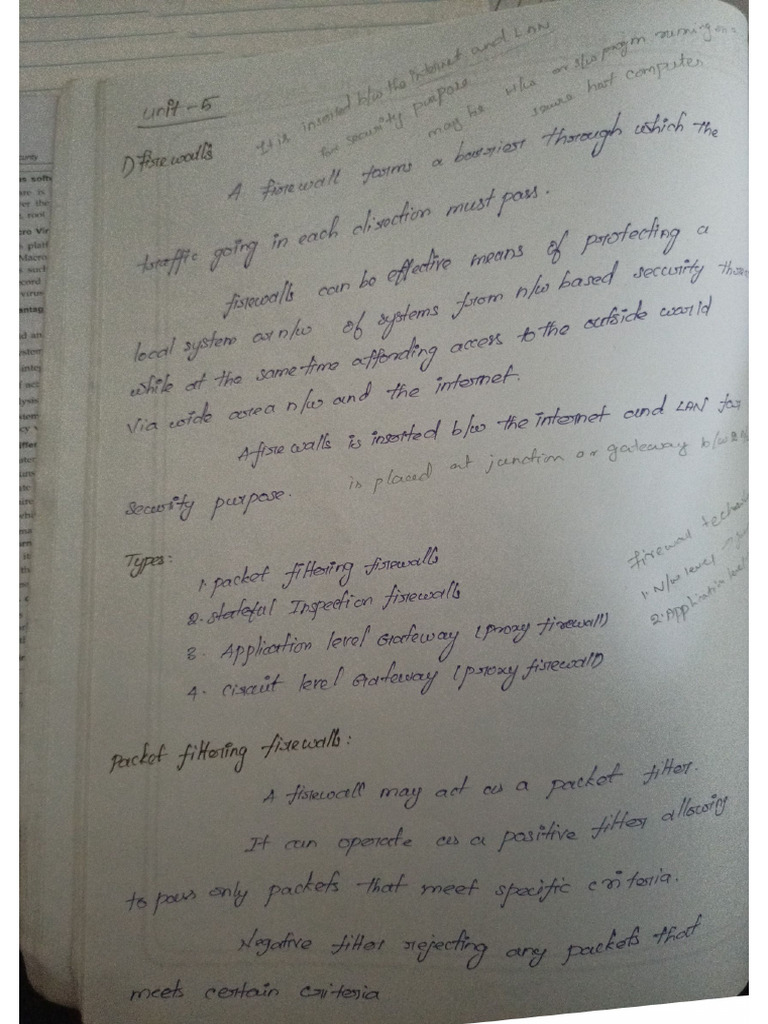 unit-5
It is inserted b/w the internet and LAN
for security purpose
may be H/w or s/w progm running on a
secure host computer
1) firewalls
A firewall forms a barrier through which the
traffic going in each direction must pass.
firewalls can be effective means of protecting a
local system or n/w of systems from n/w based security threa
while at the same time affording access to the outside world
via wide area n/w and the internet.
A firewalls is inserted b/w the internet and LAN for
security purpose. is placed at junction or gateway b/w 2
Types:
1. packet filtering firewalls
2. stateful Inspection firewalls
3. Application level Gateway (proxy firewall)
4. Circuit level Gateway (proxy firewall)
firewall techni
1. N/w level →
2. Application level
packet filtering firewalls:
A firewall may act as a packet filter.
It can operate as a positive filter allowing
to pass only packets that meet specific criteria.
Negative filter rejecting any packets that
meets certain criteria